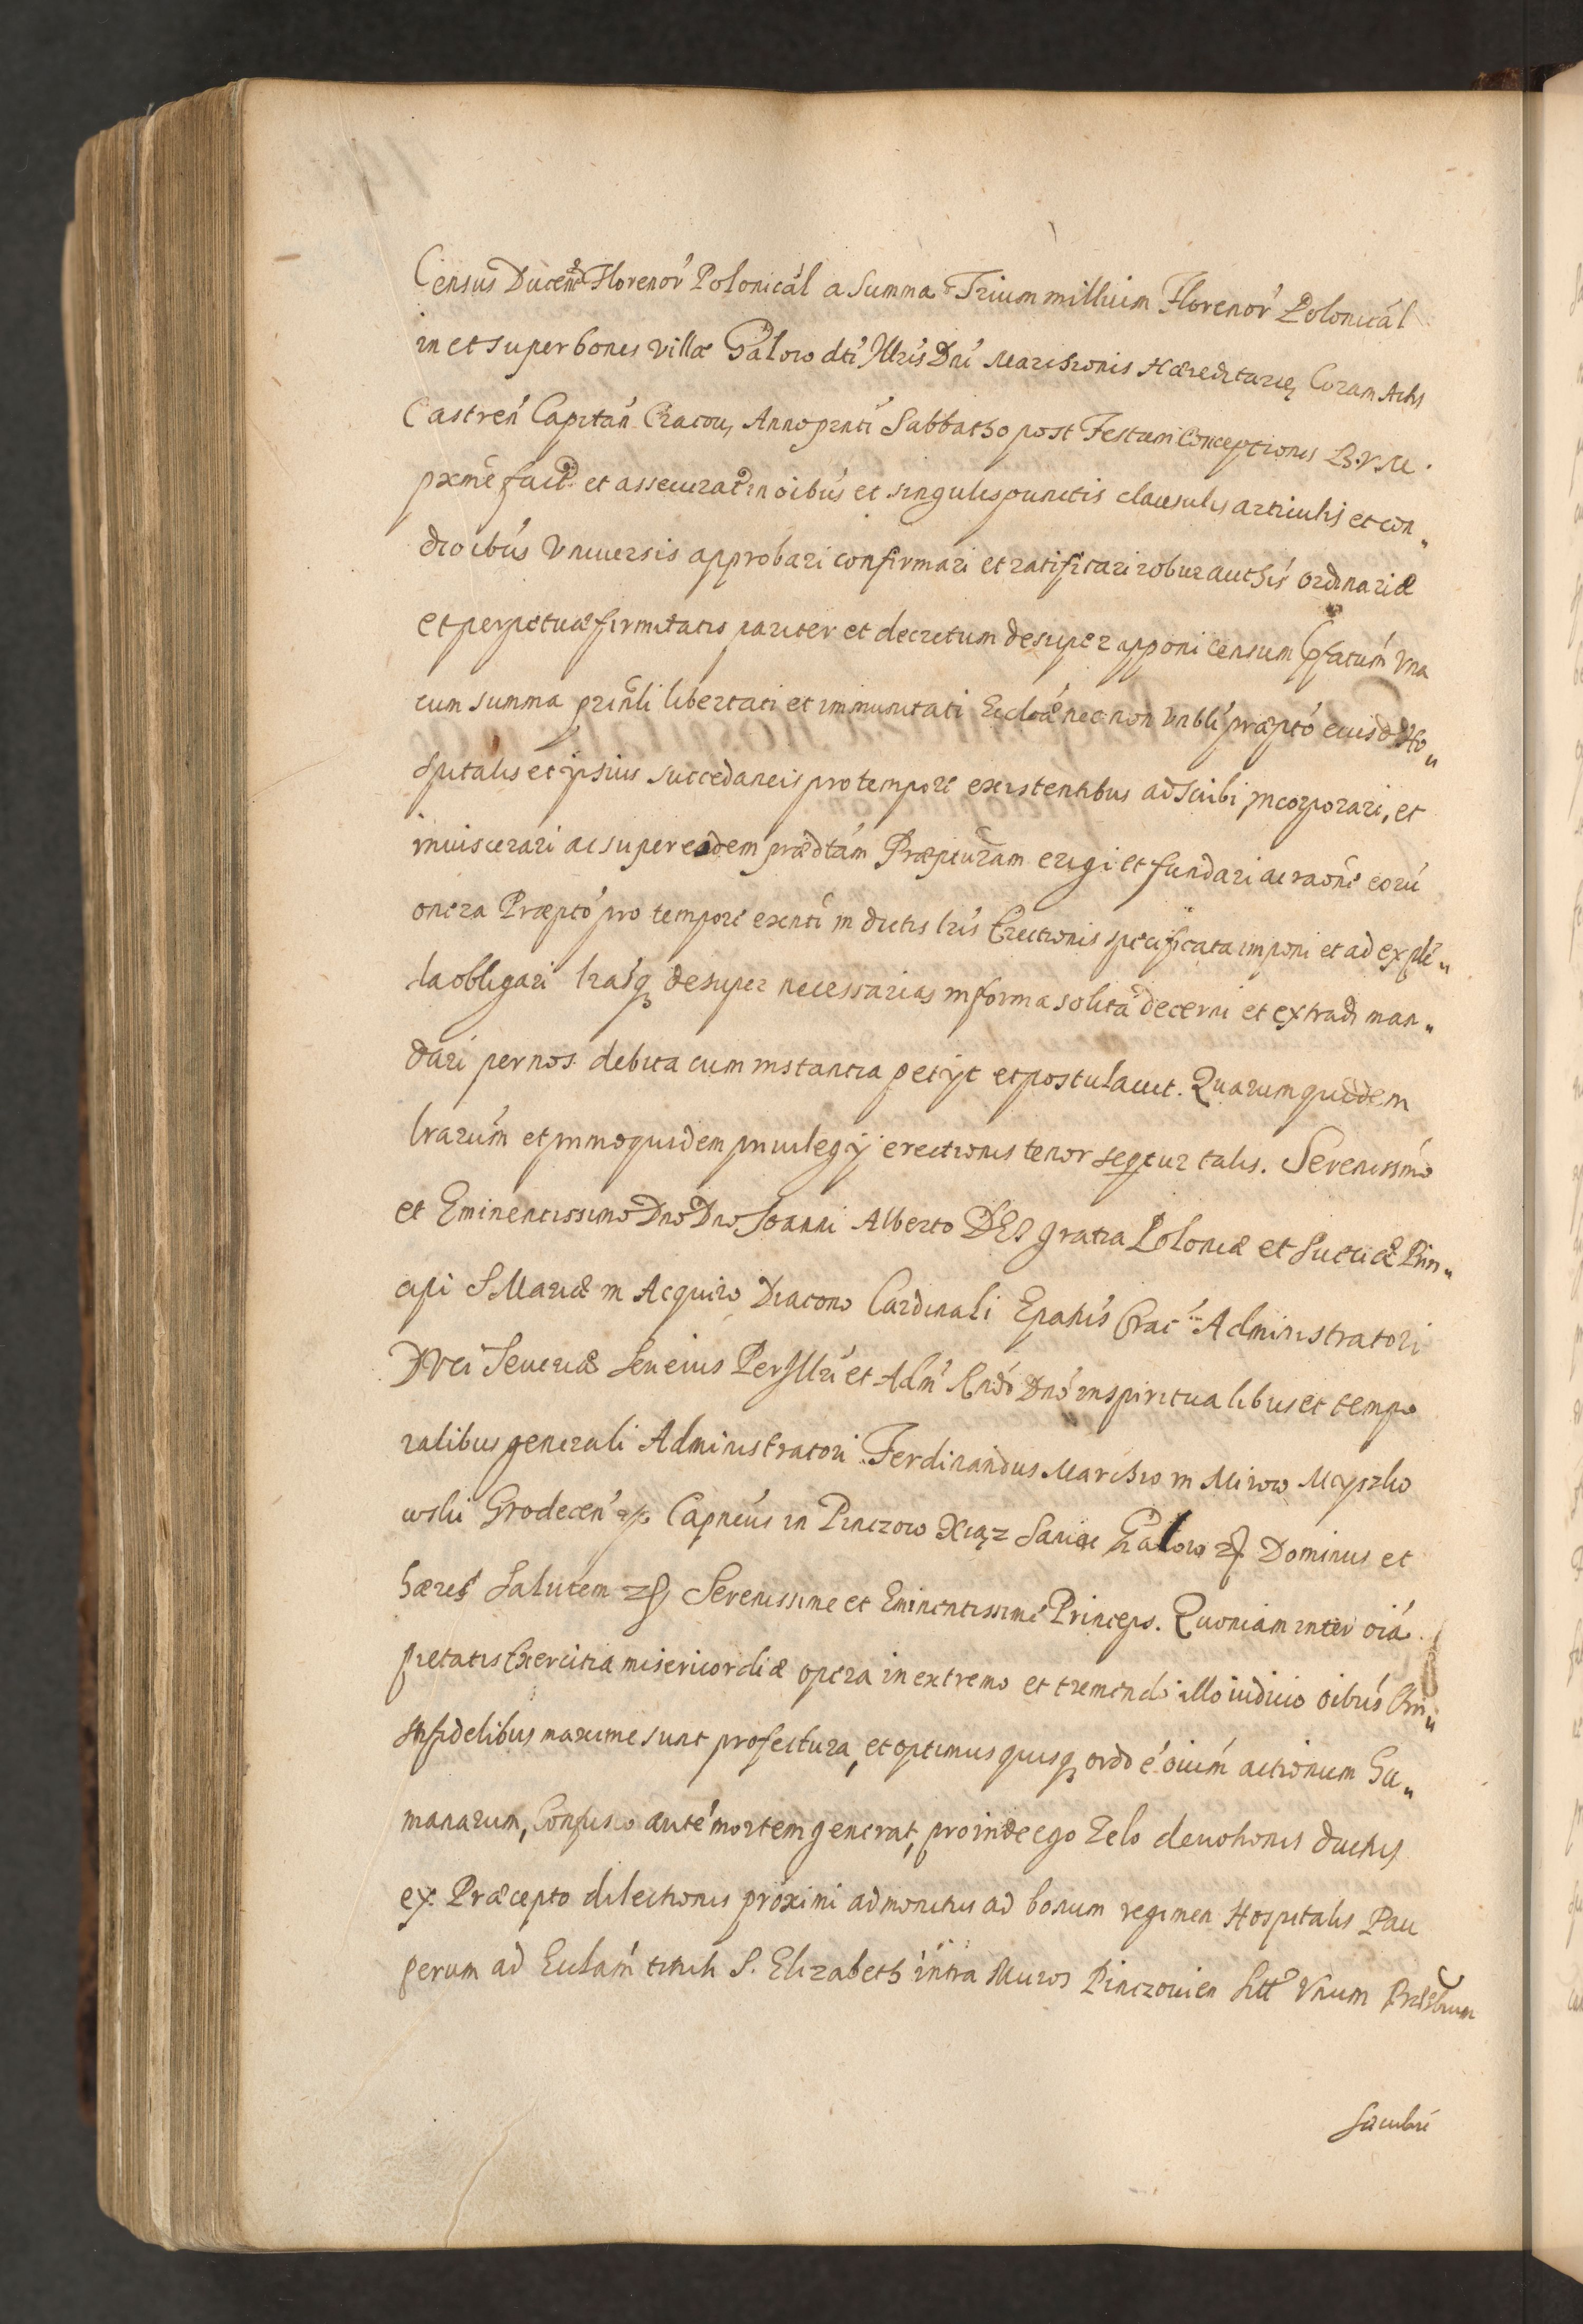 Census Ducent Florenor Polonical a Summa Trium millium Florenor Polonical
in et super bonis villæ Galow dti Illris Dni Marchionis Hæreditarię Coram Actis
Castren Capitan Cracou, Anno pnti Sabbatho post Festum Conceptionis B.V.M.
pxme fact et assecurat in oibus et singulis punctis clausulis articulis et con„
dioibus Vniuersis approbari confirmari et ratificari robur authis ordinariæ
et perpetuæ firmitatis pariter et decretum desuper apponi censum pfatum Vna
cum summa prinli libertati et immunitati Eccliæ nec non Vnbli præpto eiusd Ho„
spitalis et ipsius succedaneis pro tempore existentibus adscribi, incorporari, et
inuiscerari ac super eadem prædtam Præpturam erigi et fundari ac raone eoru
onera Præpto pro tempore exnti in dictis lris Erectionis specificata imponi et ad exple„
da obligari lrasq desuper necessarias in forma solita decerni et extradi man„
dari per nos debita cum instantia petijt et postulauit. Quarum quidem
lrarum et primo quidem priuilegij erectionis tenor seqtur talis. Serenissimo
et Eminentissimo Dno Dno Joanni Alberto DEI gratia Poloniæ et Sueciæ Prin„
cipi S Mariæ in Acquiro Diacono Cardinali Epatus Crac Administratori
DVci Seueriæ Seu eius Perillri et Adm Rndo Dno in spiritualibus et tempo
ralibus generali Administratori Ferdinandus Marchio in Mirow Myszko
wski Grodecen Capneus in Pinczow Xiąz Galow Dominus et
hæres Salutem Serenissime et Eminentissime Princeps. Quoniam inter oia
pietatis Exercitia misericordiæ opera in extremo et tremendo illo iudicio oibus Chri„
stifidelibus maxime sunt profectura, et optimus quisq ordo é oium actionum hu„
manarum, Confusio aute mortem generat, proinde ego Zelo deuotionis ductus
ex Præcepto dilectionis proximi admonitus ad bonum regimen Hospitalis Pau
perum ad Eccłam tituli S. Elizabeth intra Muros Pinczouien Vnum Prbrum